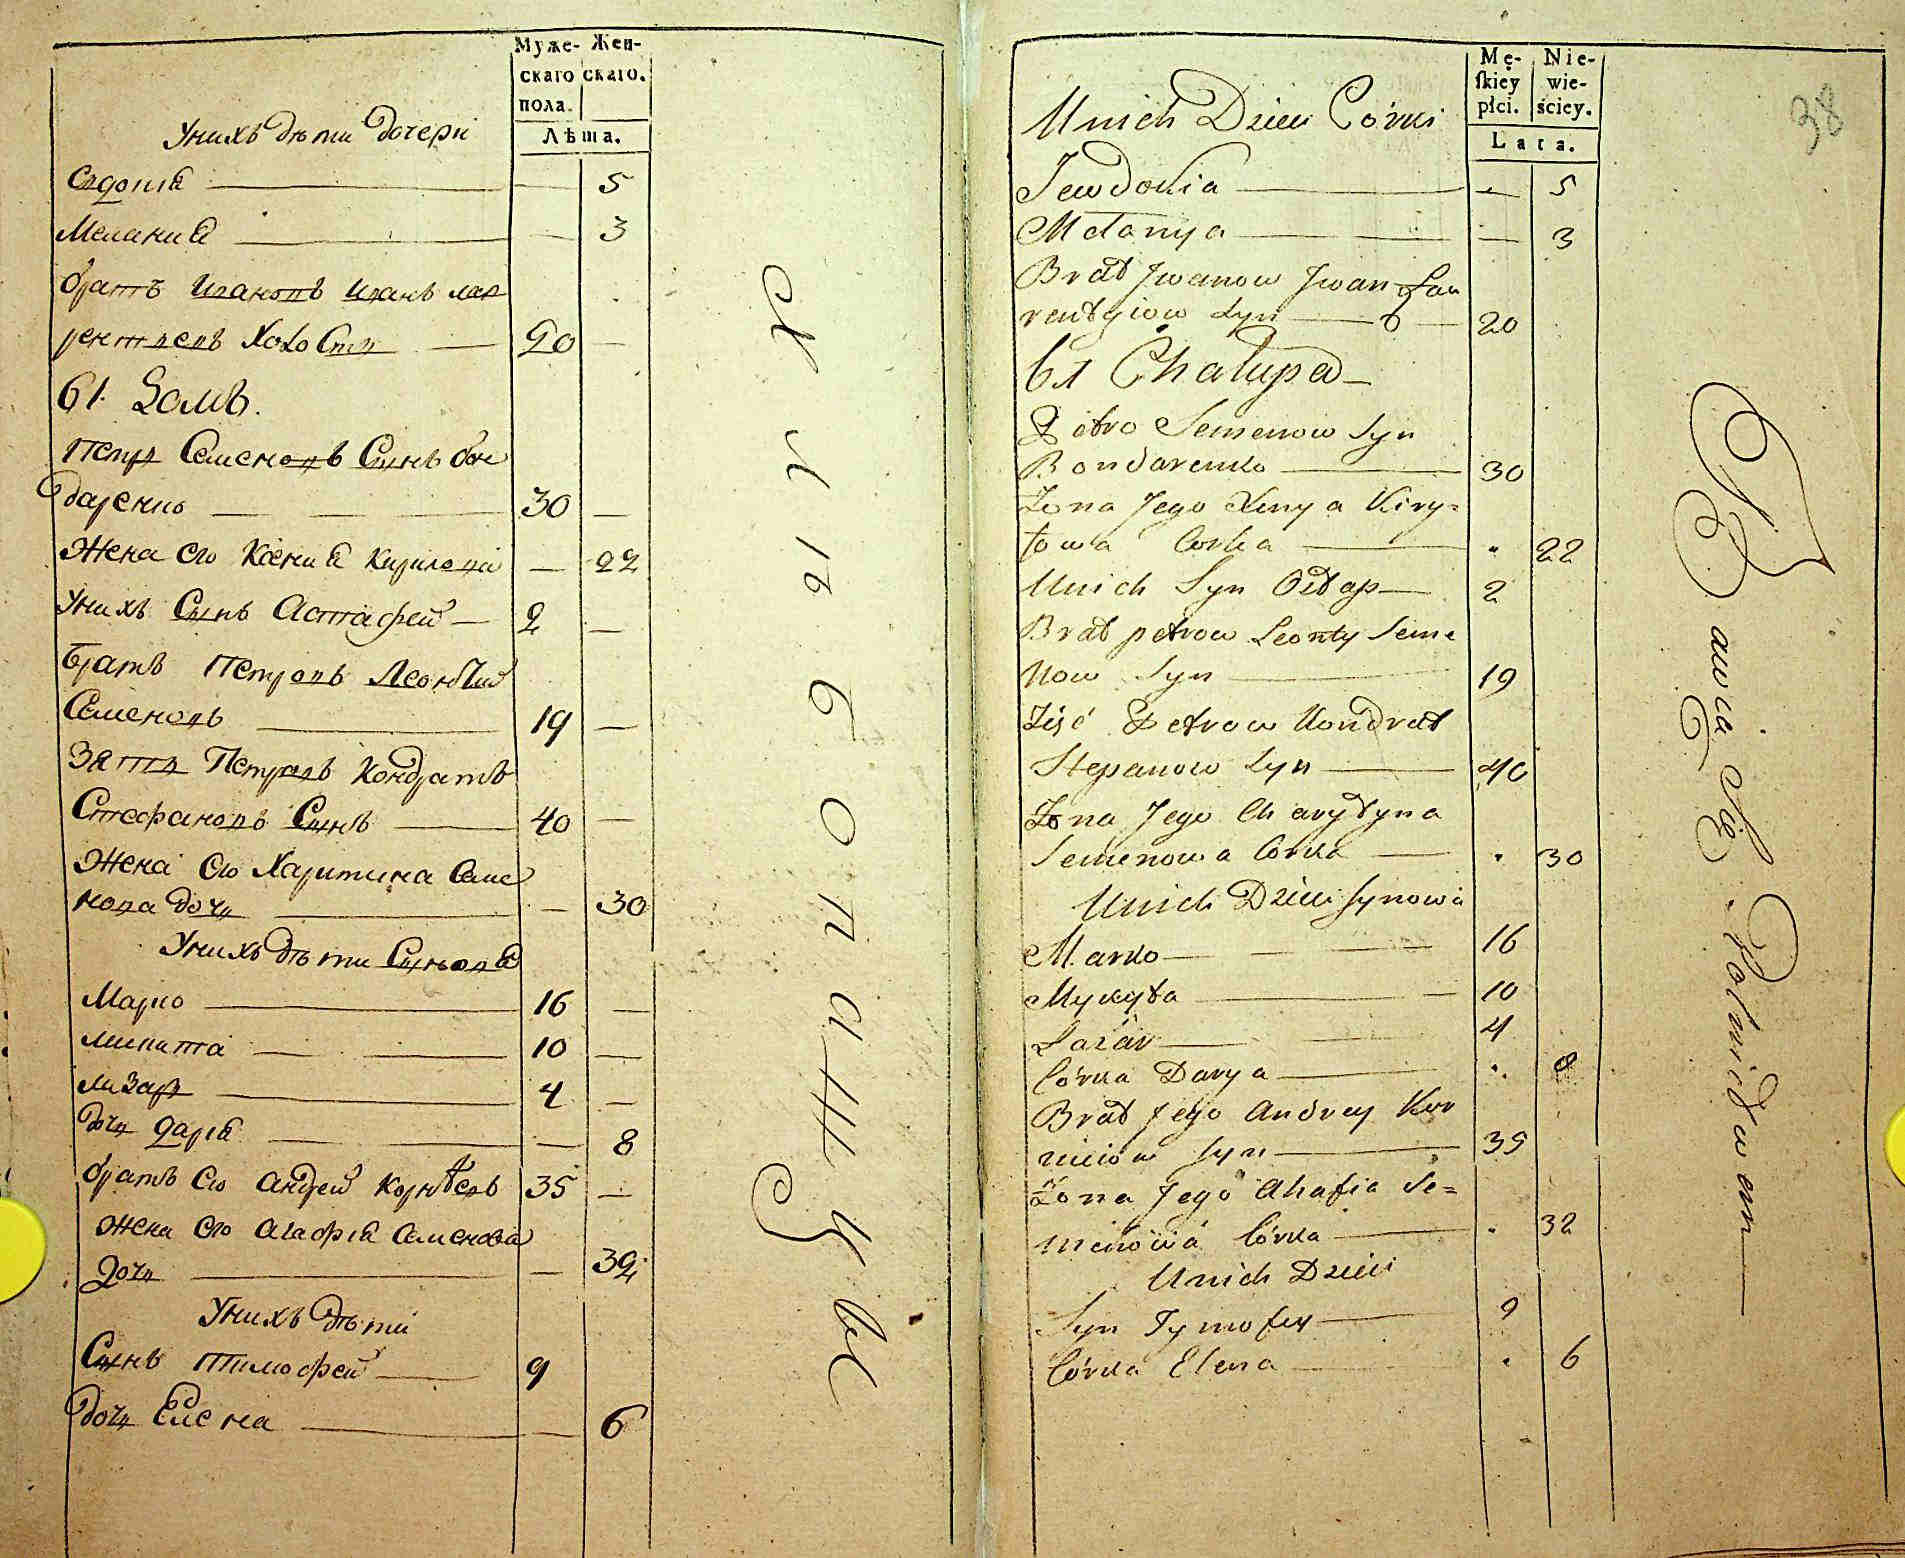 Муже- Жен-
скаго скаго.
пола.
Лѣта.
У нихъ дѣти дочери
Евдокия — — 5
Мелания — — 3
братъ Ивановъ Иванъ лав
рентиевъ Холостъ — 20 —
61. Домъ.
Петръ Семеновъ Сынъ бон
даренко — — — 30 —
Жена его Ксения Кирилова — 22
У нихъ Сынъ Астафей — 2 —
братъ Петровъ Леонтий
Семеновъ — 19 —
Зять Петровъ Кондратъ
Стефановъ Сынъ — 40 —
Жена его Харитина Семе
нова дочь — — 30
У нихъ дѣти Сыновя
Марко — 16 —
Микита — — 10 —
Лазарь — 4 —
дочь Дария — — 8
братъ его Андрей Корнѣевъ 35 —
Жена его Агафия Семенова
дочь — — 32
У нихъ дѣти
Сынъ Тимофей — 9
дочь Елена — — 6
Mę- Nie-
skiey wie-
płci. ściey.
Lata.
38
Unich Dzieci Córki
Jewdokia — — 5
Melanya — — 3
Brat Jwanow Jwan Law
rentyiow Syn — 20
61 Chałupa —
Petro Semenow Syn
Bondarenko — 30
Żona Jego Xenya Kiry=
łowa Corka — " 22
Unich Syn Ostap — 2
Brat petrow Leonty Seme
now Syn — 19
Zięć Petrow Kondrat
Stepanow Syn — 40
Żona Jego Charytyna
Semenowa Corka — " 30
Unich Dzieci Synowie
Marko — — 16
Mykyta — — 10
Lazar — — 4
Córka Darya — " 8
Brat Jego Andrey Kor
niiow Syn — 35
Żona Jego Ahafia Se=
menowa Córka — " 32
Unich Dzieci
Syn Tymofey — 9
Córka Elena — " 6